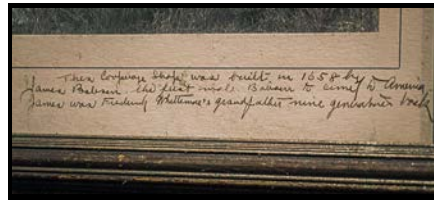 This Cooperage Shop was built in 1658 by
James Babson. the first male Babson to come to America
James was Frederick Whittemore's grandfather nine generations back